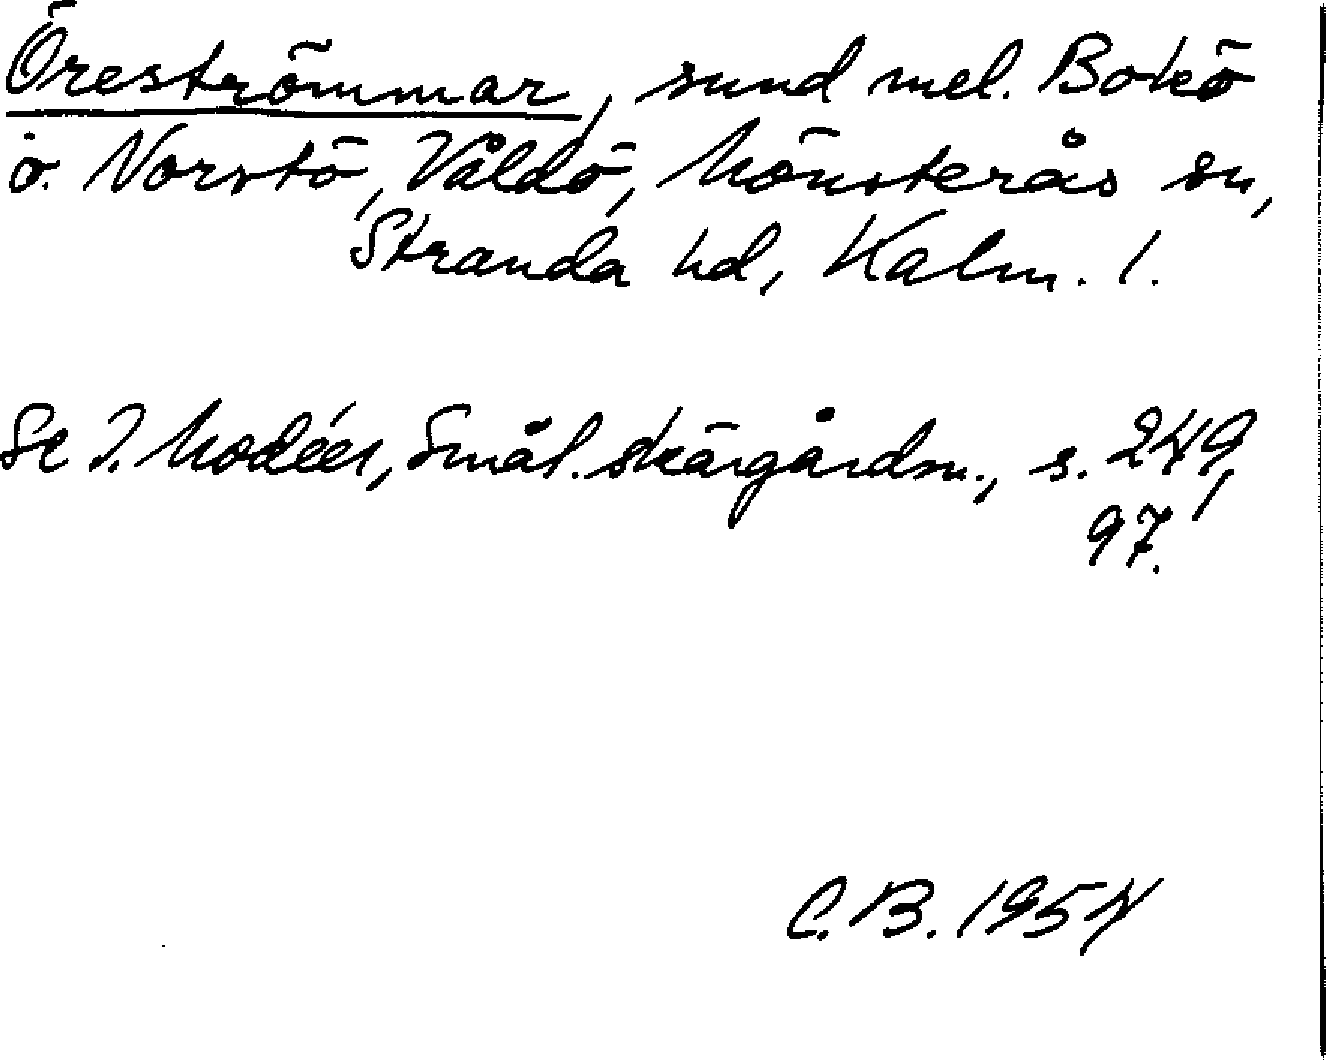 Öreströmmar, sund mel. Bokö
o. Norstö, Våldö, Mönsterås sn,
Stranda hd, Kalm. l.
Se I. Modéer, Smål. skärgårdsn., s. 249,
97.
C.B. 1954